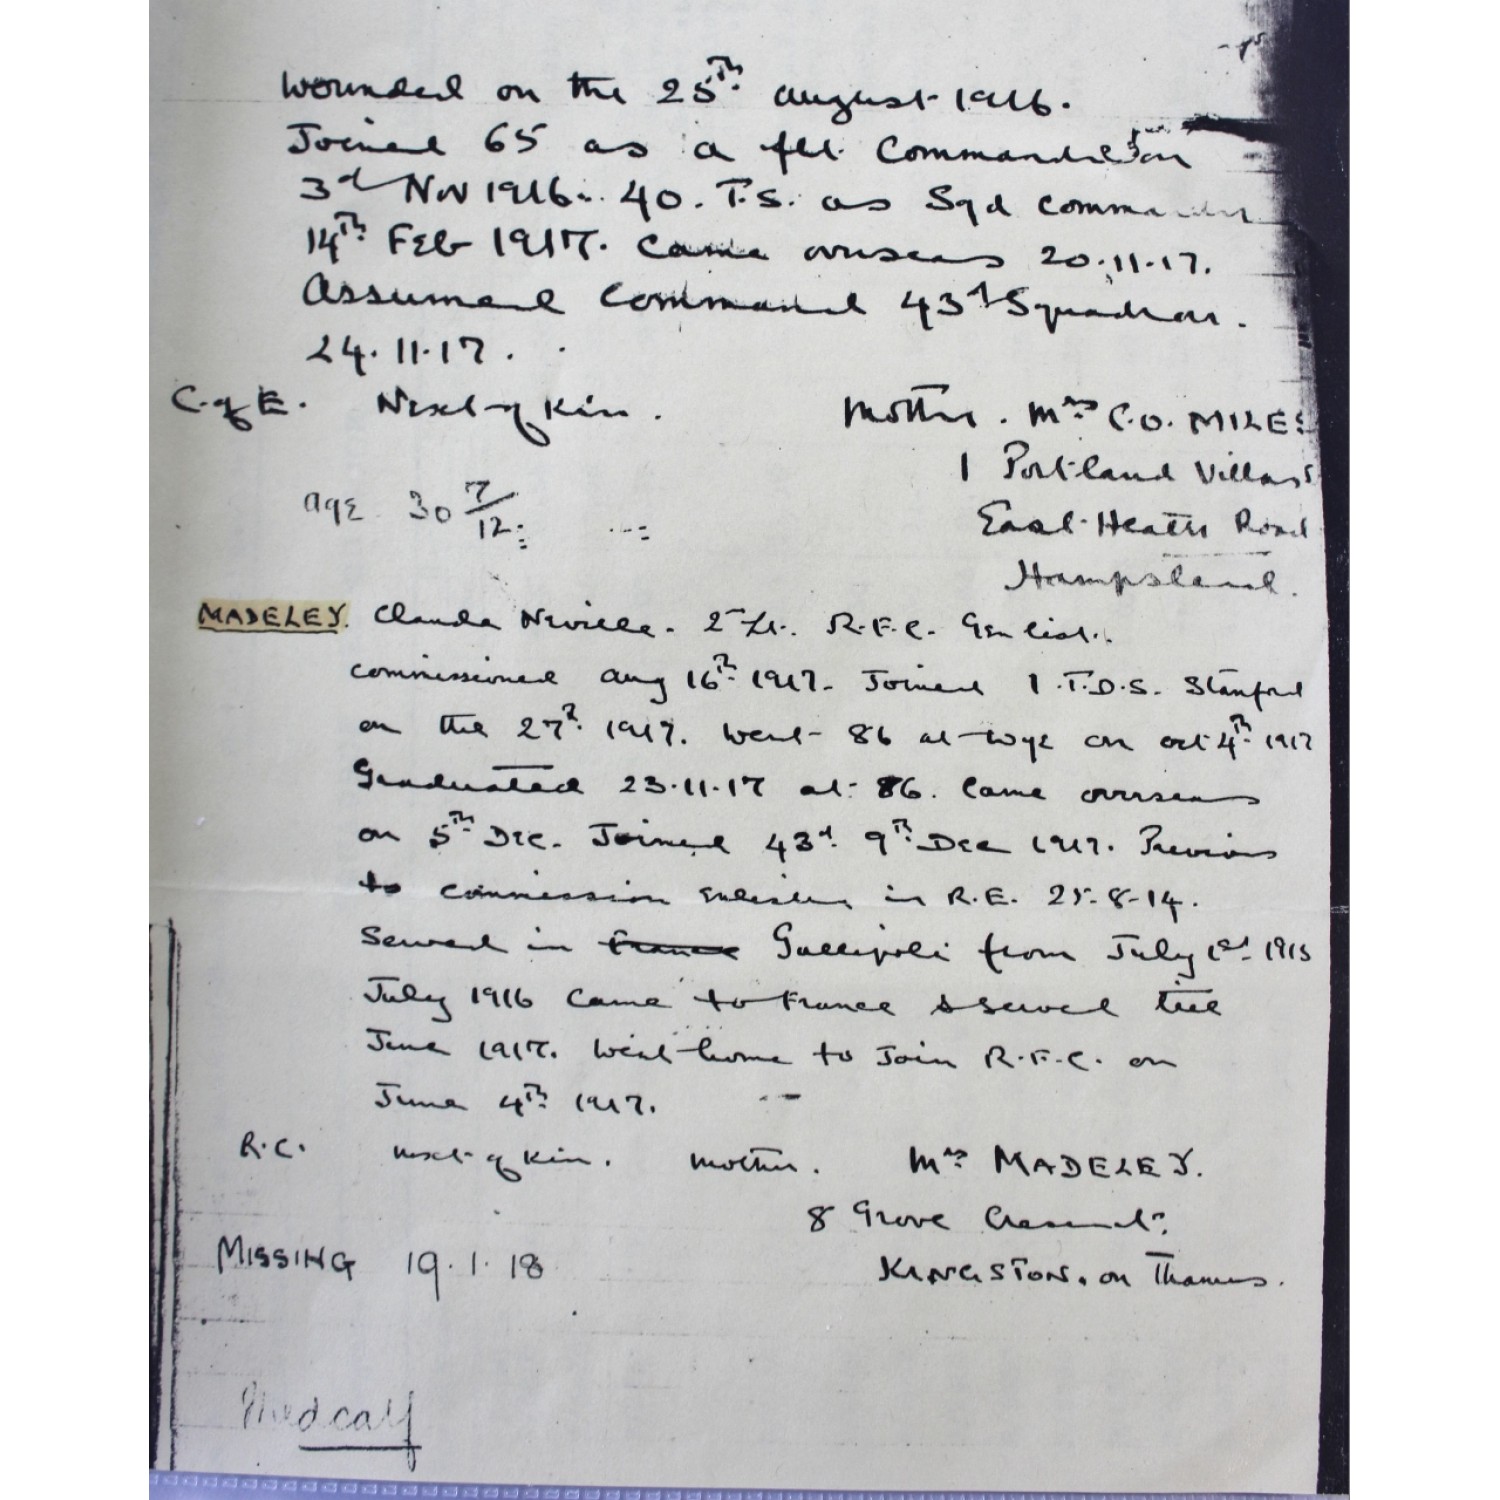 wounded on the 25th august 1916.
Joined 65 as a flt Commander on
3rd Nov 1916. 40. T.S. as Sqd commander
14th Feb 1917. Came overseas 20.11.17.
Assumed Command 43rd Squadron.
24.11.17.
C. of E. Next of Kin. Mother. Mrs C.O. MILES
1 Portland Villas
East Heath Road
Hampstead.
age 30 7/12
MADELEY. Claude Neville. 2nd Lt. R.F.C. Gen list.
commissioned Aug 16th 1917. Joined 1.T.D.S. Stamford
on the 27th 1917. Went 86 at Wye on oct 4th 1917
Graduated 23.11.17 at 86. Came overseas
on 5th Dec. Joined 43rd 9th Dec 1917. Previous
to commission enlisted in R.E. 25-8-14.
Served in France Gallipoli from July 1st 1915
July 1916 Came to France & served till
June 1917. Went home to Join R.F.C. on
June 4th 1917.
R.C. next of Kin. Mother. Mrs MADELEY.
8 Grove Crescent.
MISSING 19.1.18 KINGSTON. on Thames.
Medcalf